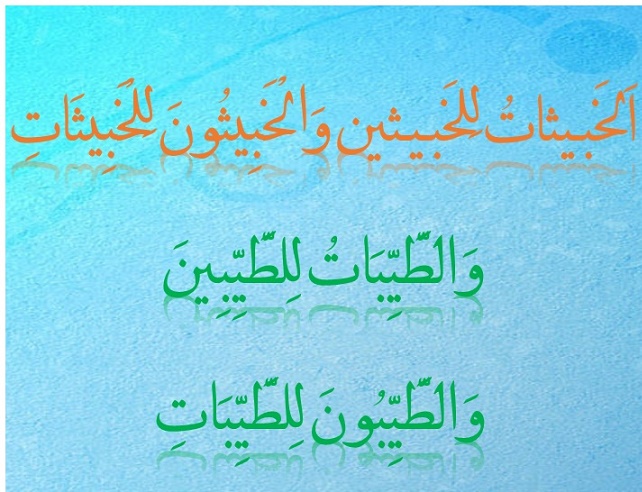 اَلْخَبيثاتُ لِلْخَبيـثين وَالْخَبِيثُونَ لِلْخَبِيثَاتِ
وَالطَّيِّبَاتُ لِلطَّيِّبِينَ
وَالطَّيِّبُونَ لِلطَّيِّبَاتِ